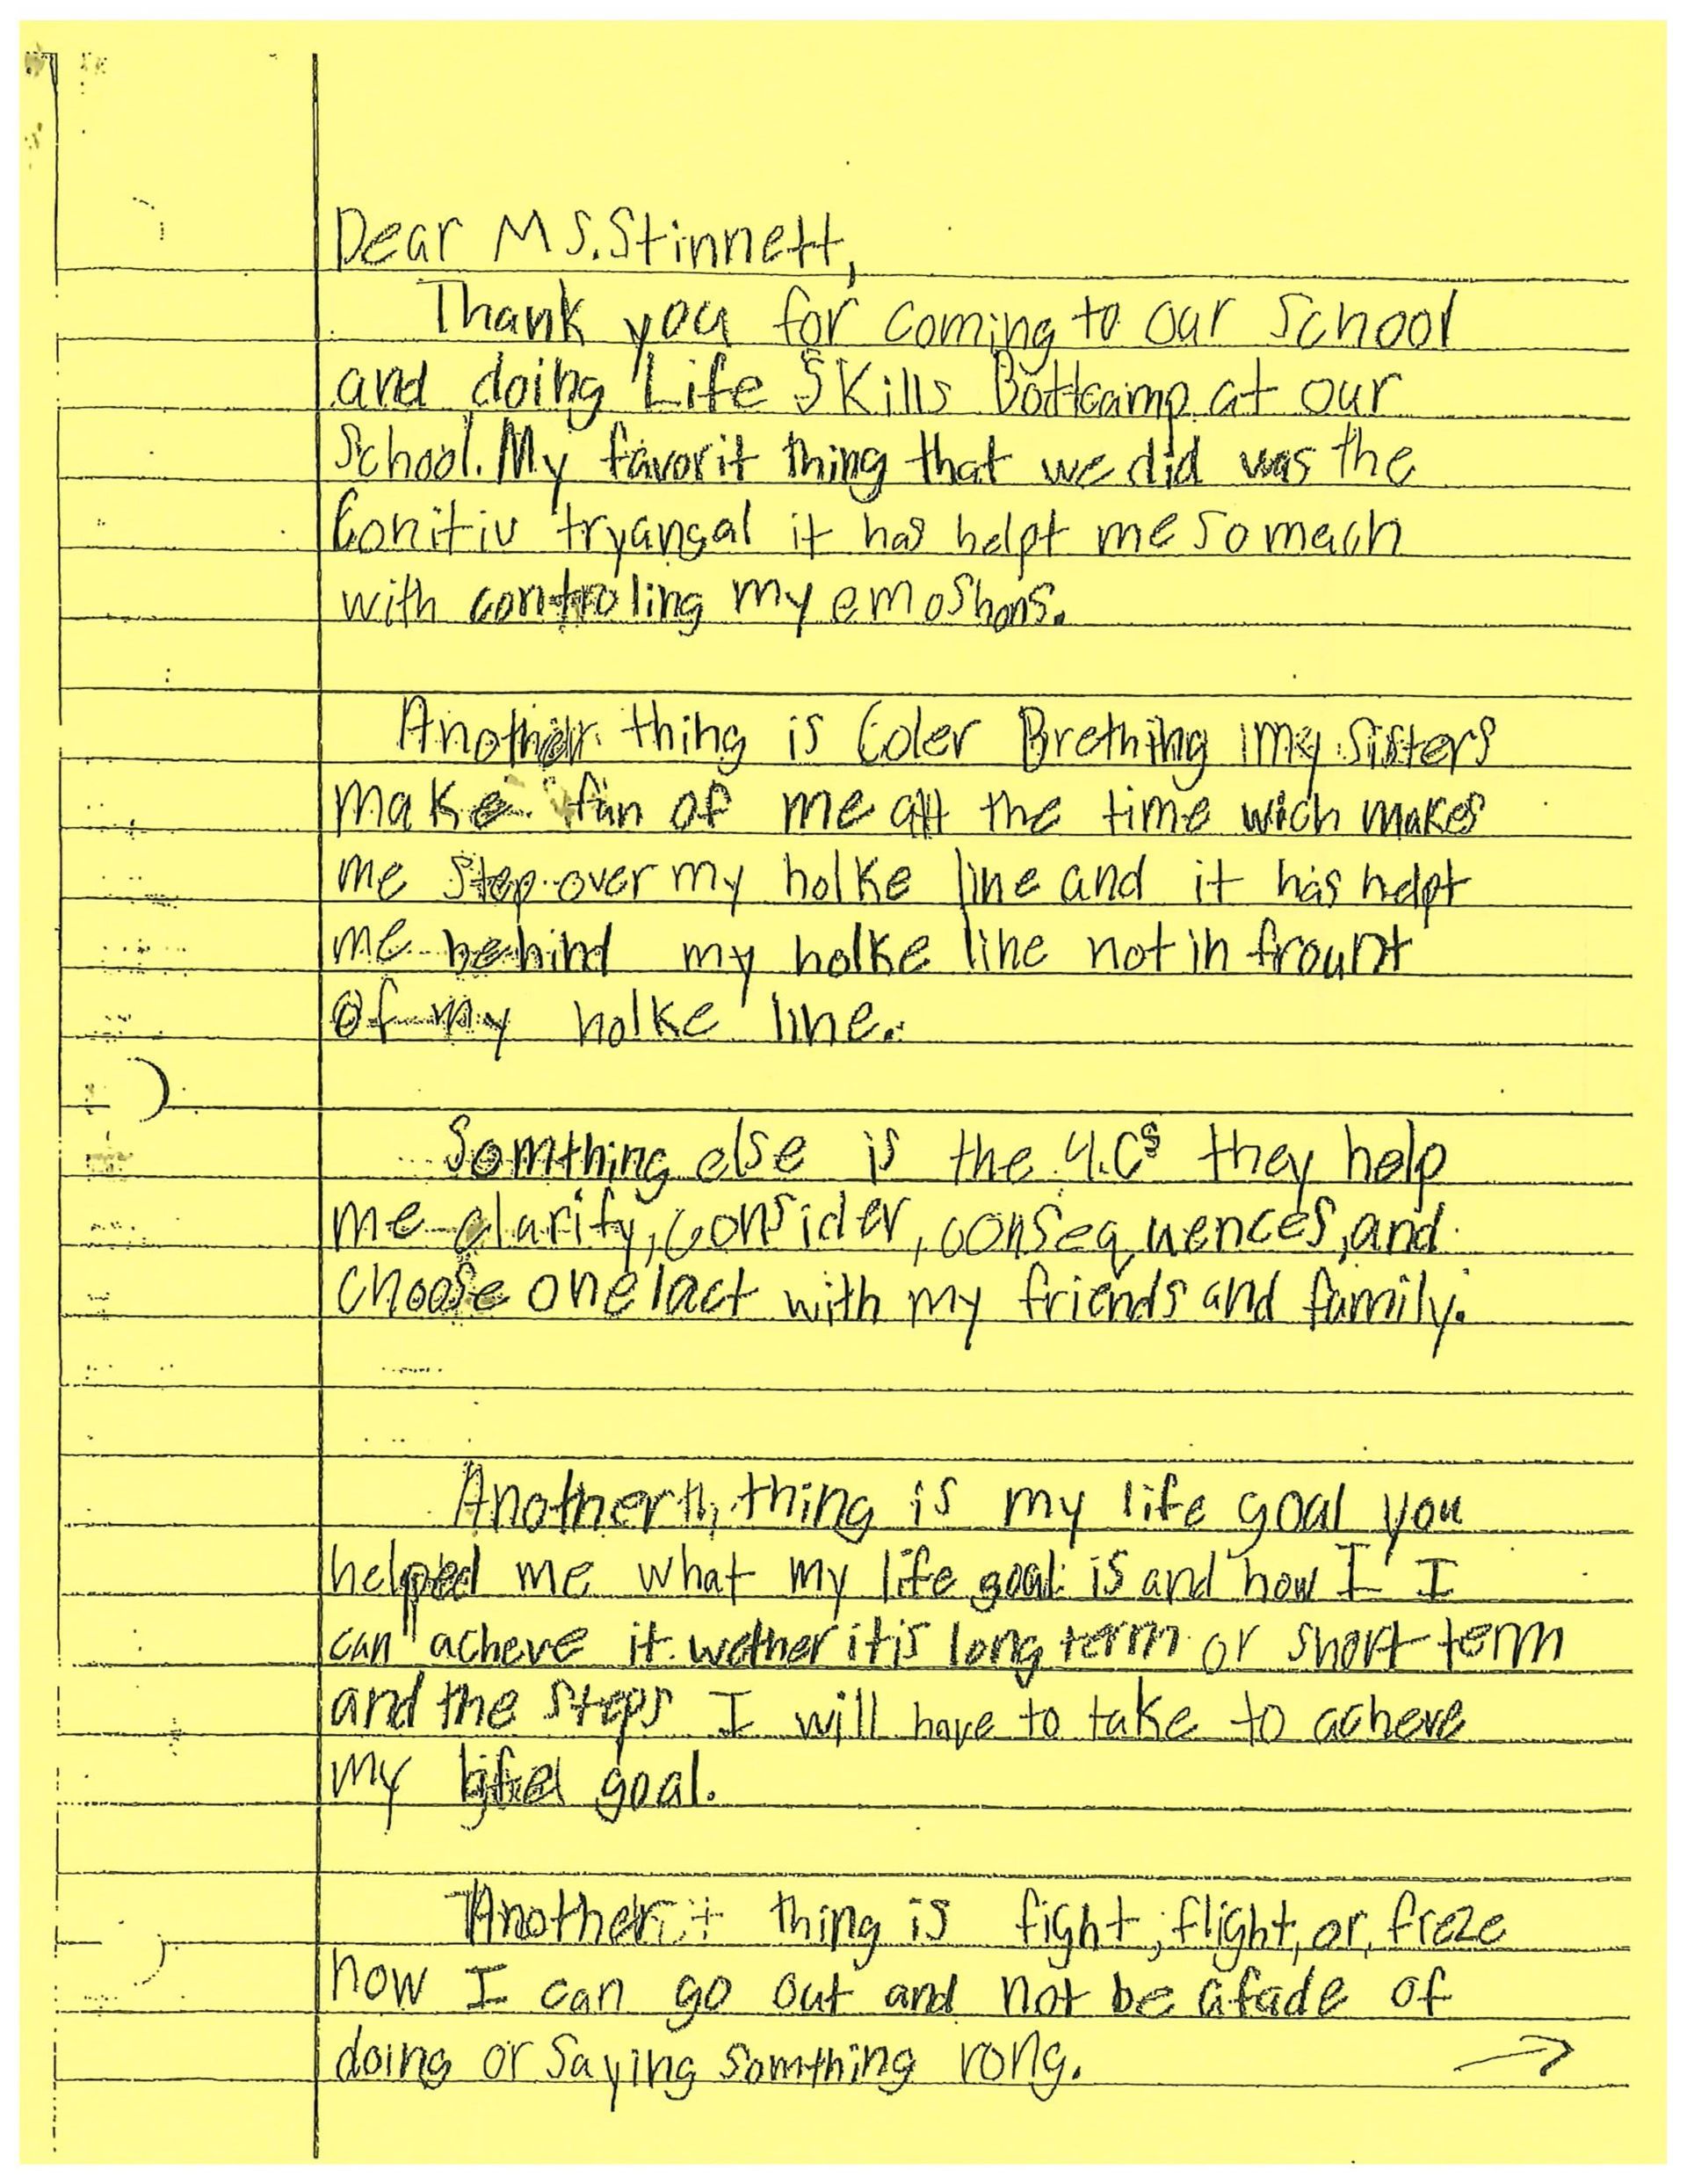 Dear Ms. Stinnett,
Thank you for coming to our School
and doing Life Skills Bottcamp at our
School. My favorit thing that we did was the
Conitiv tryangal it has helpt me so mach
with controling my emoshons.
Another thing is Coler Brething my sisters
make fun of me all the time wich makes
me step over my holke line and it has helpt
me behind my holke line not in frount
Of my holke line.
Somthing else is the 4.Cs they help
me clarify, consider, consequences, and
choose one I act with my friends and family.
Another thing is my life goal you
helped me what my life goal is and how I I
can acheve it wether it is long term or short term
and the steps I will have to take to acheve
my life goal.
Another thing is fight, flight, or, freze
how I can go out and not be afade of
doing or saying somthing rong. →